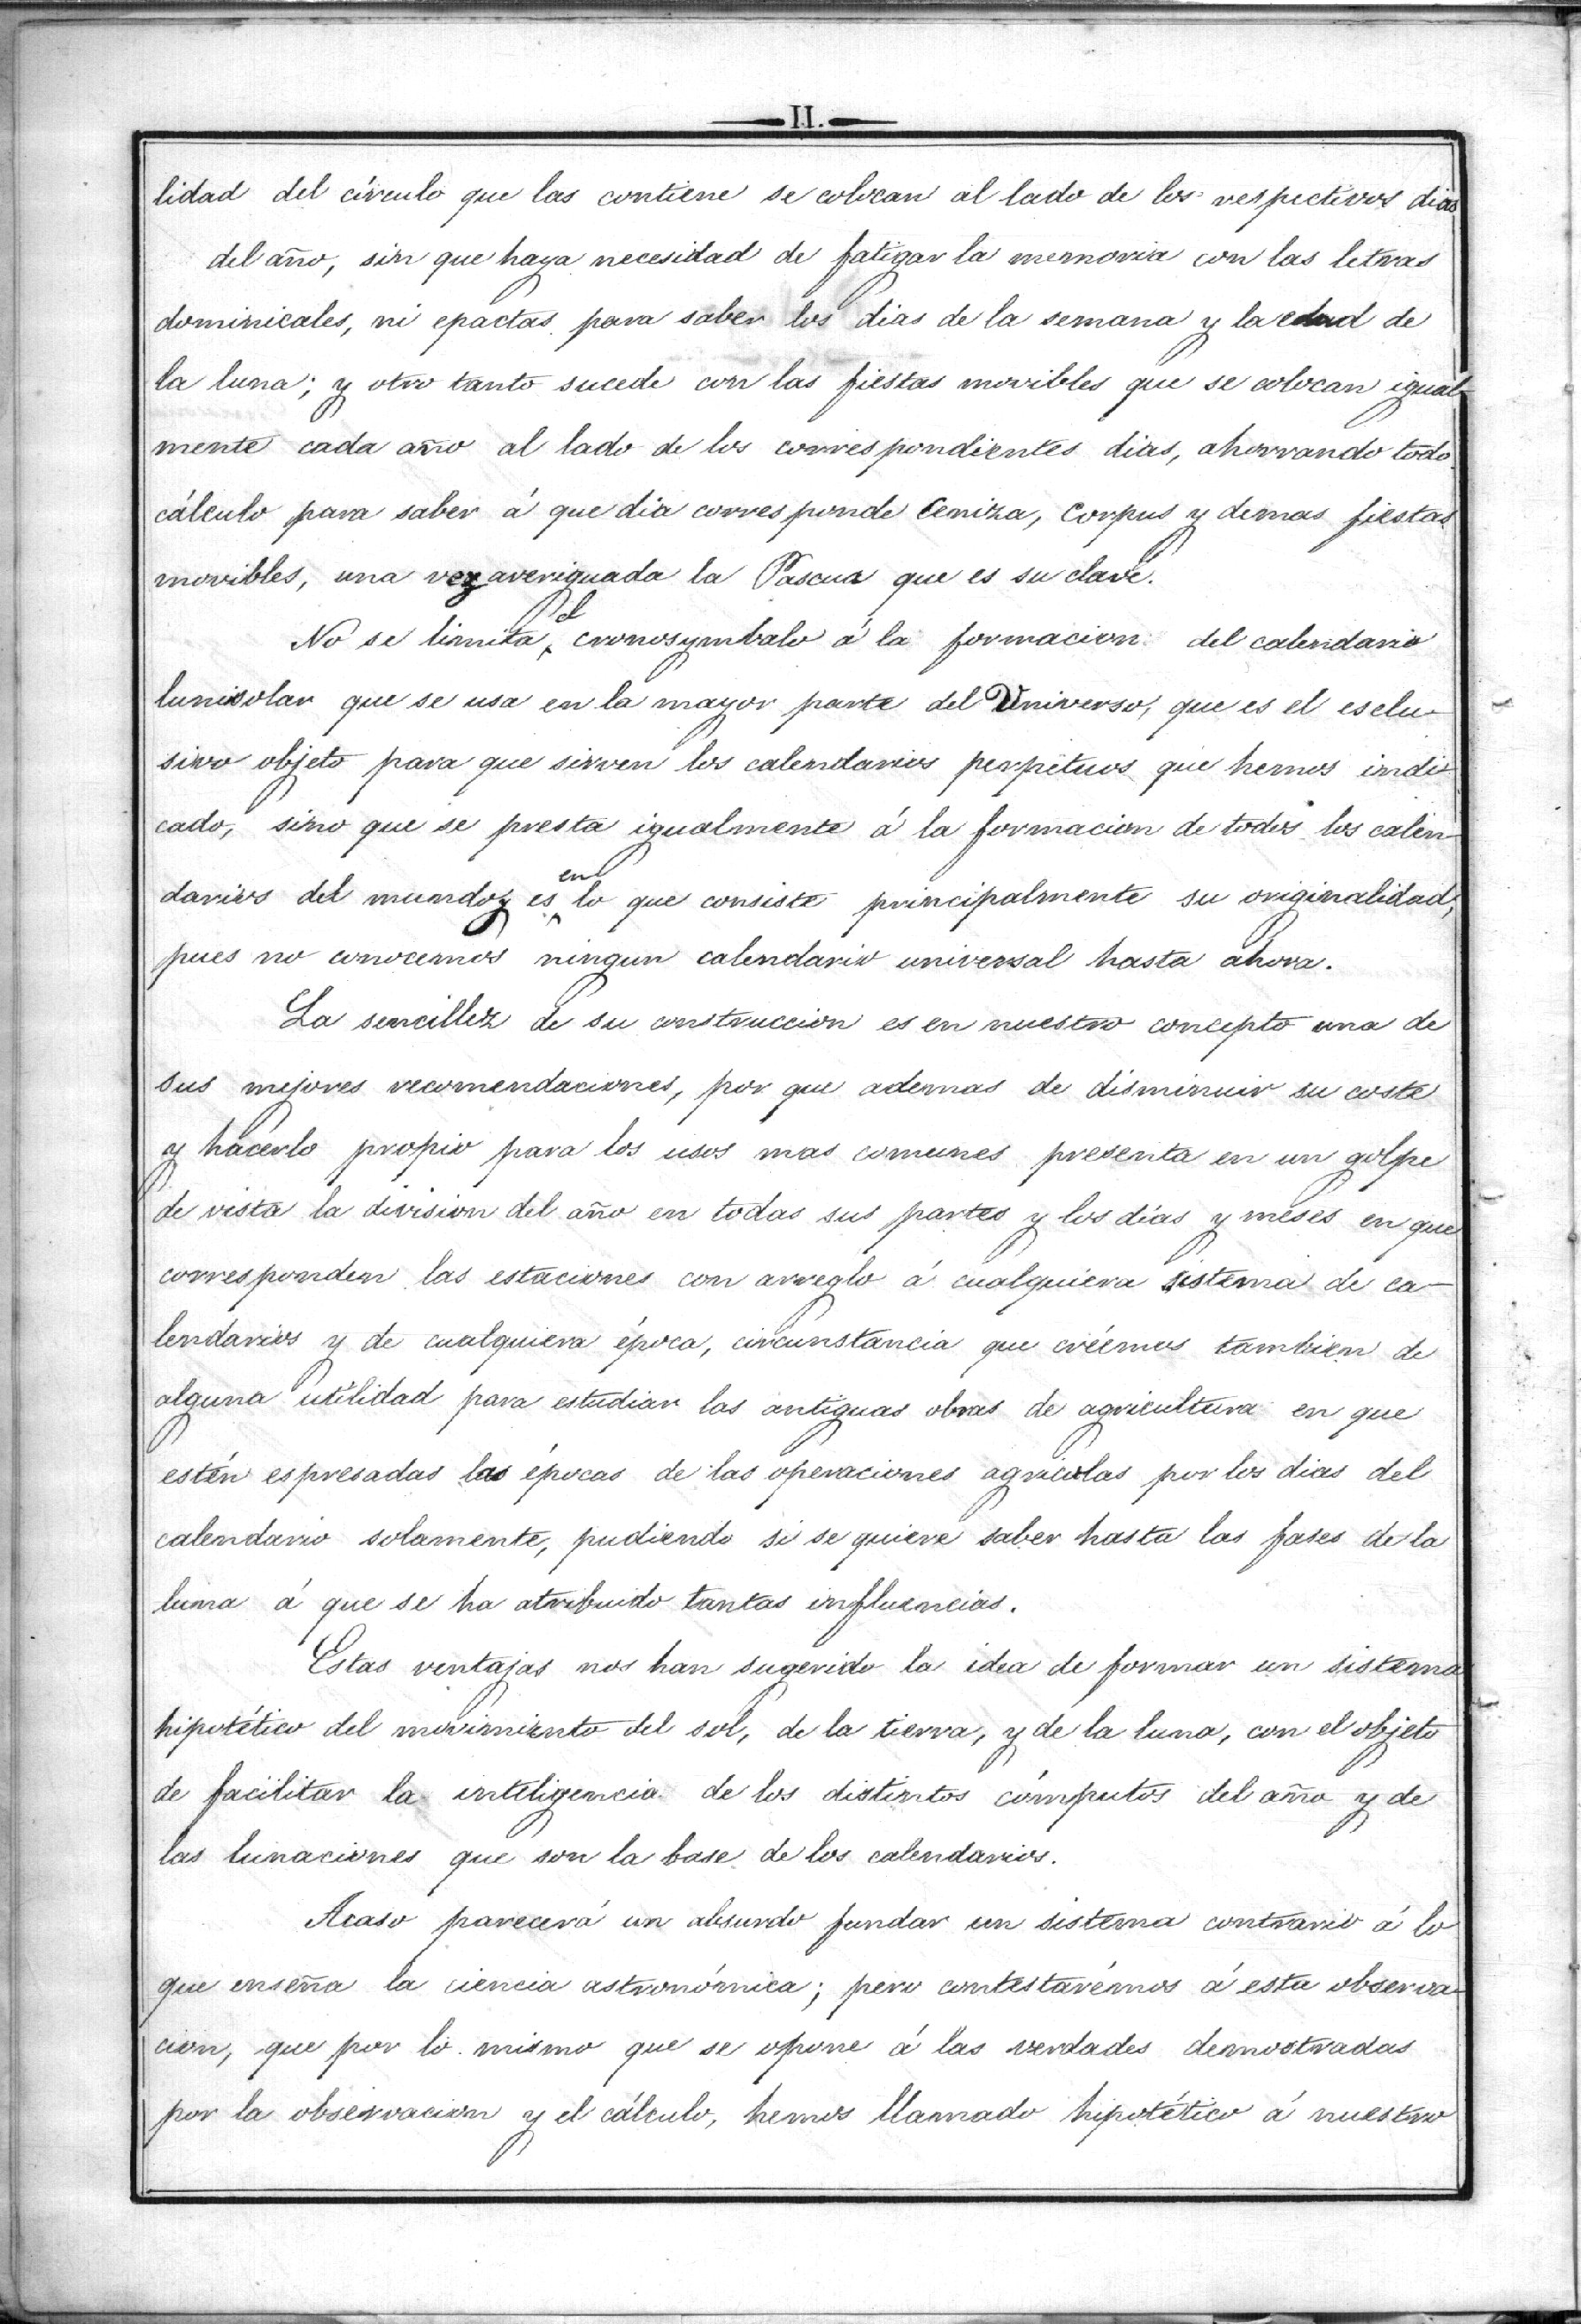 II.
lidad del círculo que las contiene se colocan al lado de los respectivos dias
del año, sin que haya necesidad de fatigar la memoria con las letras
dominicales, ni epactas para saber los dias de la semana y la edad de
la luna; y otro tanto sucede con las fiestas movibles que se colocan igual-
mente cada año al lado de los correspondientes dias, ahorrando todo
cálculo para saber á que dia corresponde Ceniza, Corpus y demas fiestas
movibles, una vez averiguada la Pascua que es su clave.
No se limita el cronosymbalo á la formacion del calendario
lunisolar que se usa en la mayor parte del Universo, que es el esclu-
sivo objeto para que sirven los calendarios perpétuos que hemos indi-
cado, sino que se presta igualmente á la formacion de todos los calen-
darios del mundo y es en lo que consiste principalmente su originalidad,
pues no conocemos ningun calendario universal hasta ahora.
La sencillez de su construccion es en nuestro concepto una de
sus mejores recomendaciones, por que ademas de disminuir su coste
y hacerlo propio para los usos mas comunes presenta en un golpe
de vista la division del año en todas sus partes y los días y meses en que
corresponden las estaciones con arreglo á cualquiera sistema de ca-
lendarios y de cualquiera época, circunstancia que creémos tambien de
alguna utilidad para estudiar las antiguas obras de agricultura en que
estén espresadas las épocas de las operaciones agrícolas por los dias del
calendario solamente, pudiendo si se quiere saber hasta las fases de la
luna á que se ha atribuido tantas influencias.
Estas ventajas nos han sugerido la idea de formar un sistema
hipotético del movimiento del sol, de la tierra, y de la luna, con el objeto
de facilitar la inteligencia de los distintos cómputos del año y de
las lunaciones que son la base de los calendarios.
Acaso parecerá un absurdo fundar un sistema contrario á lo
que enseña la ciencia astronómica; pero contestarémos á esta observa-
cion, que por lo mismo que se opone á las verdades demostradas
por la observacion y el cálculo, hemos llamado hipotético á nuestro